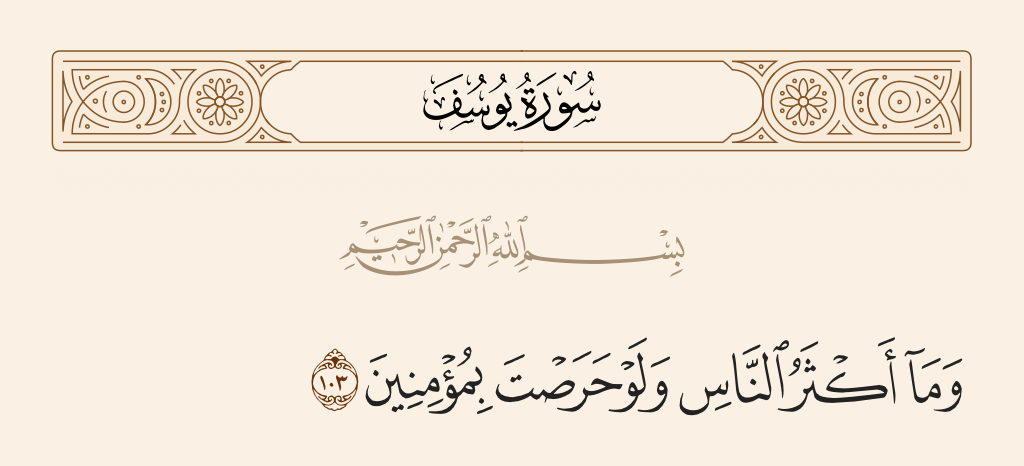 سُورَةُ يُوسُفَ
بِسْمِ ٱللَّهِ ٱلرَّحْمَٰنِ ٱلرَّحِيمِ
وَمَآ أَكْثَرُ ٱلنَّاسِ وَلَوْ حَرَصْتَ بِمُؤْمِنِينَ ١٠٣